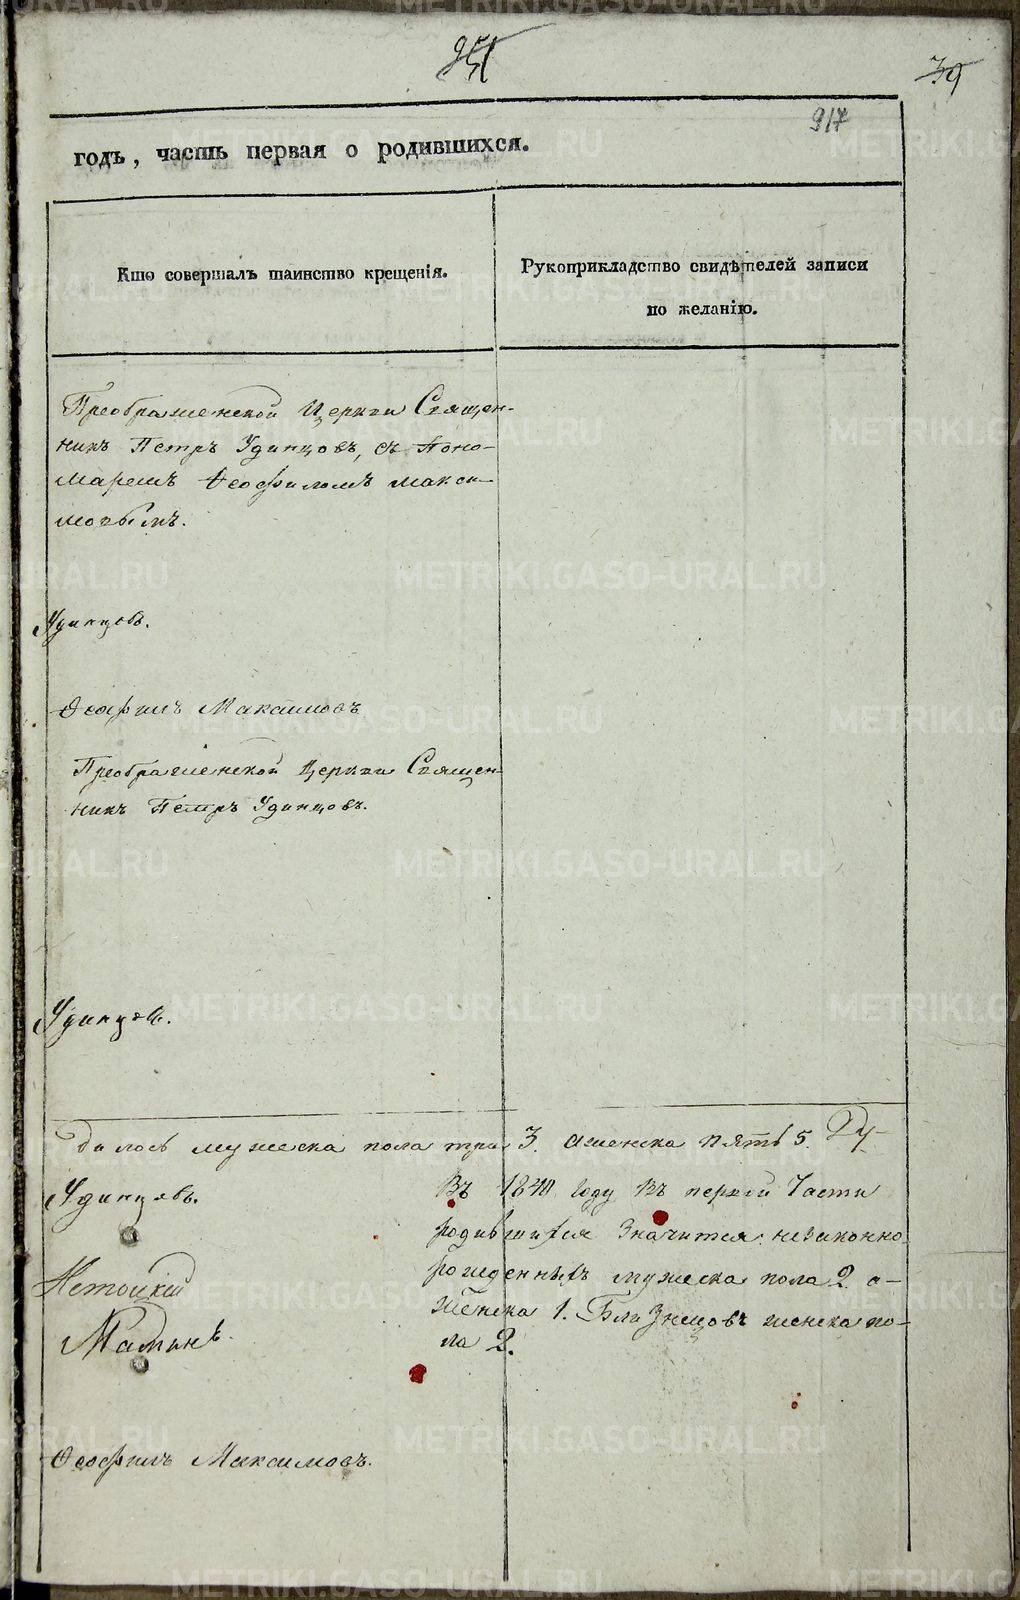 39
917
годъ, часть первая о родившихся.
Кто совершалъ таинство крещенія.
Рукоприкладство свидѣтелей записи
по желанію.
Преображенской Церкви Священ-
никъ Петръ Удинцовъ, съ Поно-
маремъ Ѳеофиломъ Макси-
мовымъ.
Удинцовъ.
Ѳеофилъ Максимовъ
Преображенской Церкви Священ-
никъ Петръ Удинцовъ.
Удинцовъ.
дилось мужеска пола три 3. а женска пять 5.
Удинцовъ.
Маминъ.
Ѳеофилъ Максимовъ.
Въ 1840 году въ первой Части
родившихся значится незаконно-
рожденныхъ мужеска пола 2 а-
женска 1. Близнецовъ женска по-
ла 2.
METRIKI.GASO-URAL.RU